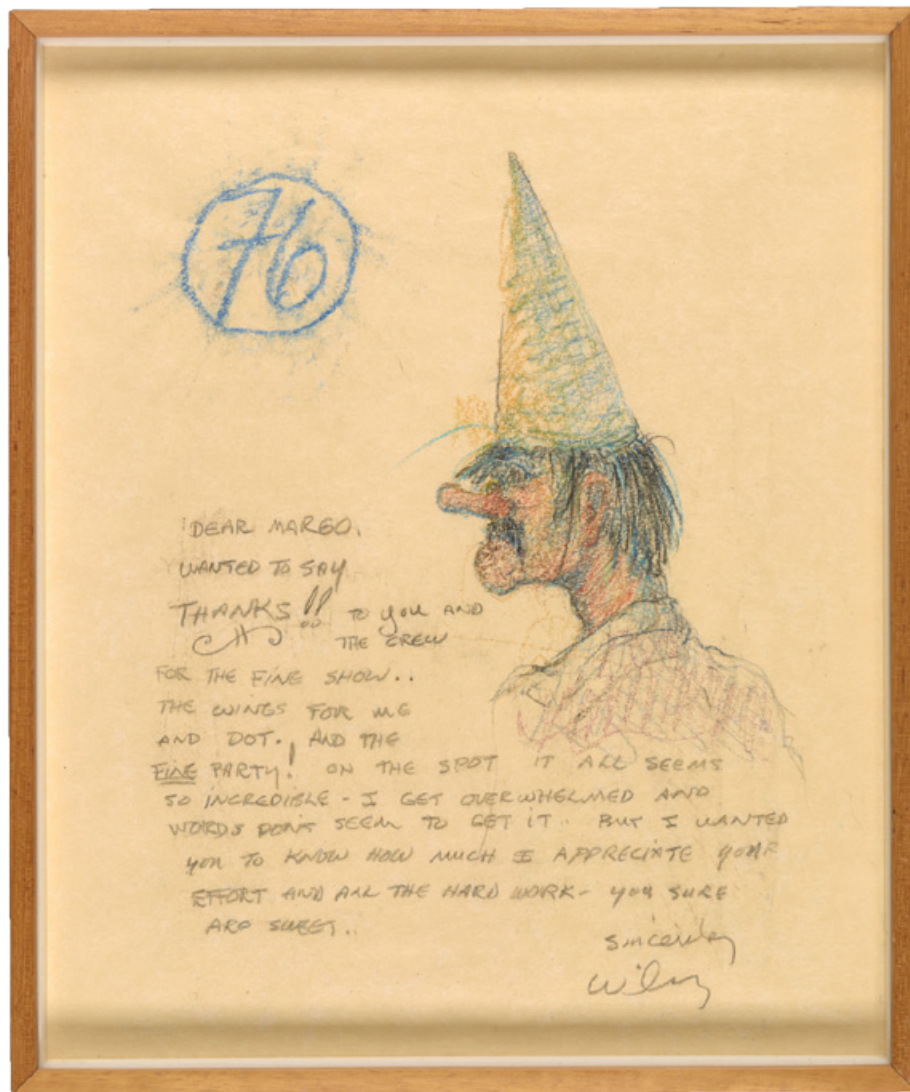 76
DEAR MARGO,
WANTED TO SAY
THANKS!! TO YOU AND
THE CREW
FOR THE FINE SHOW..
THE WINGS FOR ME
AND DOT., AND THE
FINE PARTY! ON THE SPOT IT ALL SEEMS
SO INCREDIBLE - I GET OVERWHELMED AND
WORDS DON'T SEEM TO GET IT.. BUT I WANTED
YOU TO KNOW HOW MUCH I APPRECIATE YOUR
EFFORT AND ALL THE HARD WORK - YOU SURE
ARE SWEET..
Sincerely
Wiley